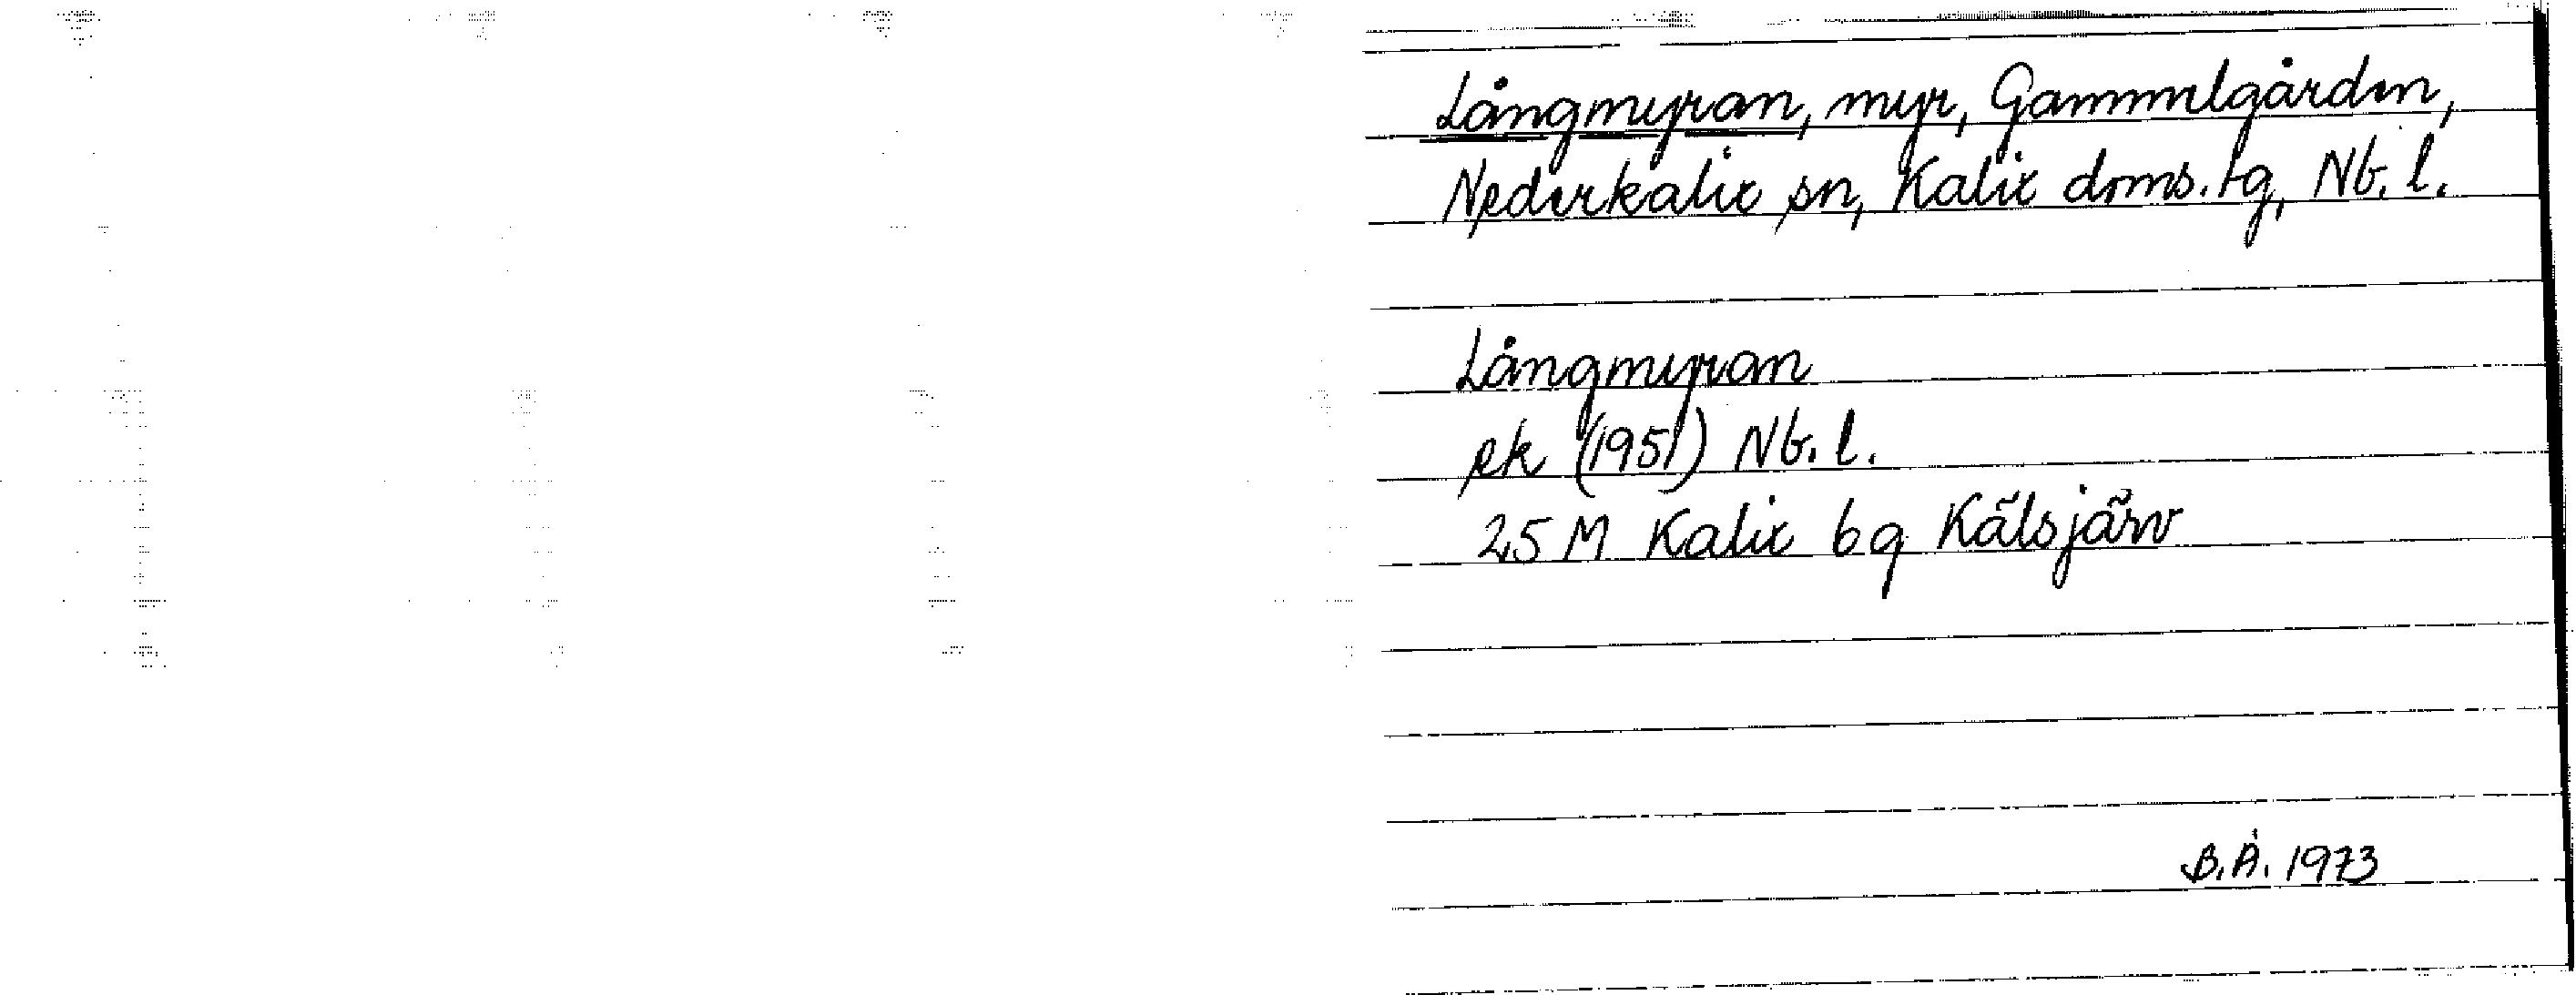 Långmyran, myr, Gammelgården,
Nederkalix sn, Kalix doms. tg, Nb. l.
Långmyran
ek (1951) Nb. l.
25 M Kalix 6 g Kälsjärv
B.Å. 1973